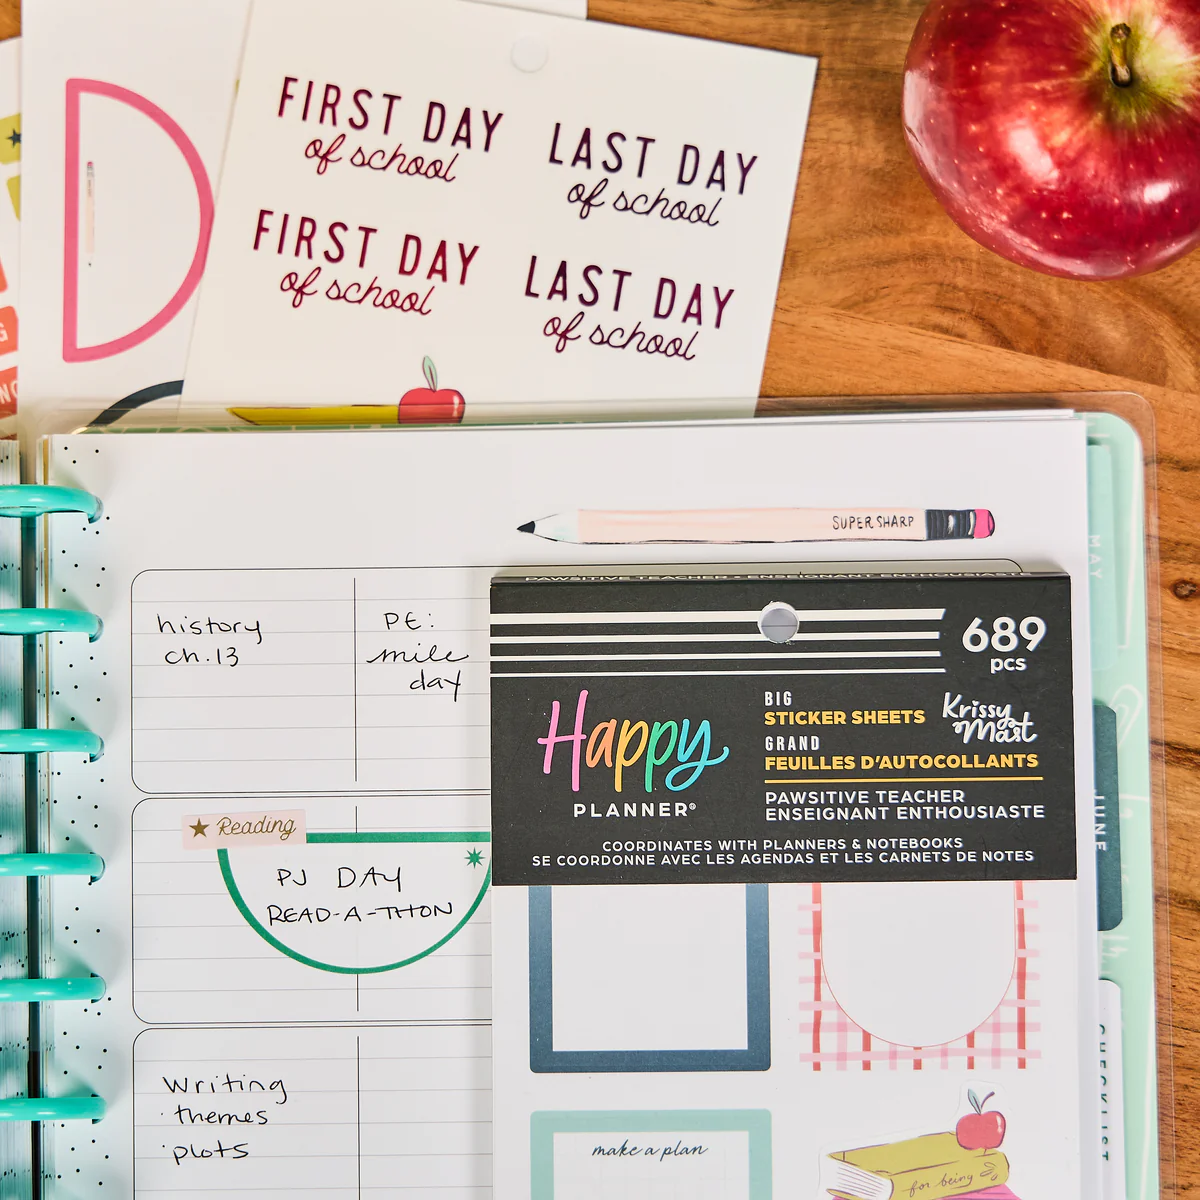 FIRST DAY
of school
LAST DAY
of school
FIRST DAY
of school
LAST DAY
of school
SUPER SHARP
MAY
history
ch.13
PE:
mile
day
PAWSITIVE TEACHER
689
pcs
Happy
PLANNER®
BIG
STICKER SHEETS
GRAND
FEUILLES D'AUTOCOLLANTS
Krissy
Mast
PAWSITIVE TEACHER
ENSEIGNANT ENTHOUSIASTE
COORDINATES WITH PLANNERS & NOTEBOOKS
SE COORDONNE AVEC LES AGENDAS ET LES CARNETS DE NOTES
JUNE
★ Reading
PJ DAY
READ-A-THON
Writing
· themes
· plots
CHECKLIST
make a plan
for being